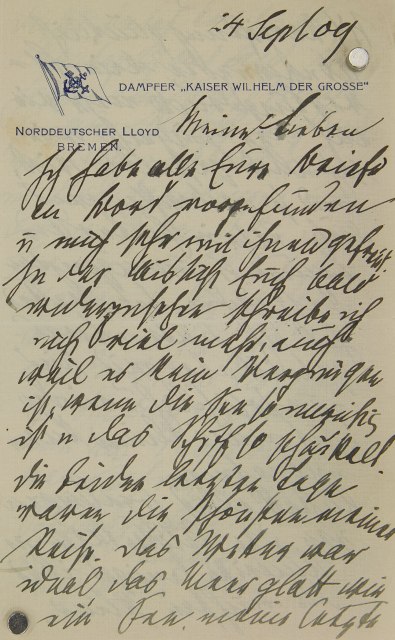 24 Sept 09
DAMPFER „KAISER WILHELM DER GROSSE“
NORDDEUTSCHER LLOYD
BREMEN.
Meine Lieben
Ich habe alle Eure Briefe
an Bord vorgefunden
u mich sehr mit ihnen gefreut
In der Aussicht Euch bald
wiederzusehen schreibe ich
nicht viel mehr, auch
weil es kein Vergnügen
ist, wenn die See so unruhig
ist u das Schiff so schaukelt
die beiden letzten Tage
waren die schönsten meiner
Reise. Das Wetter war
ideal das Meer glatt wie
ein See. meine letzte